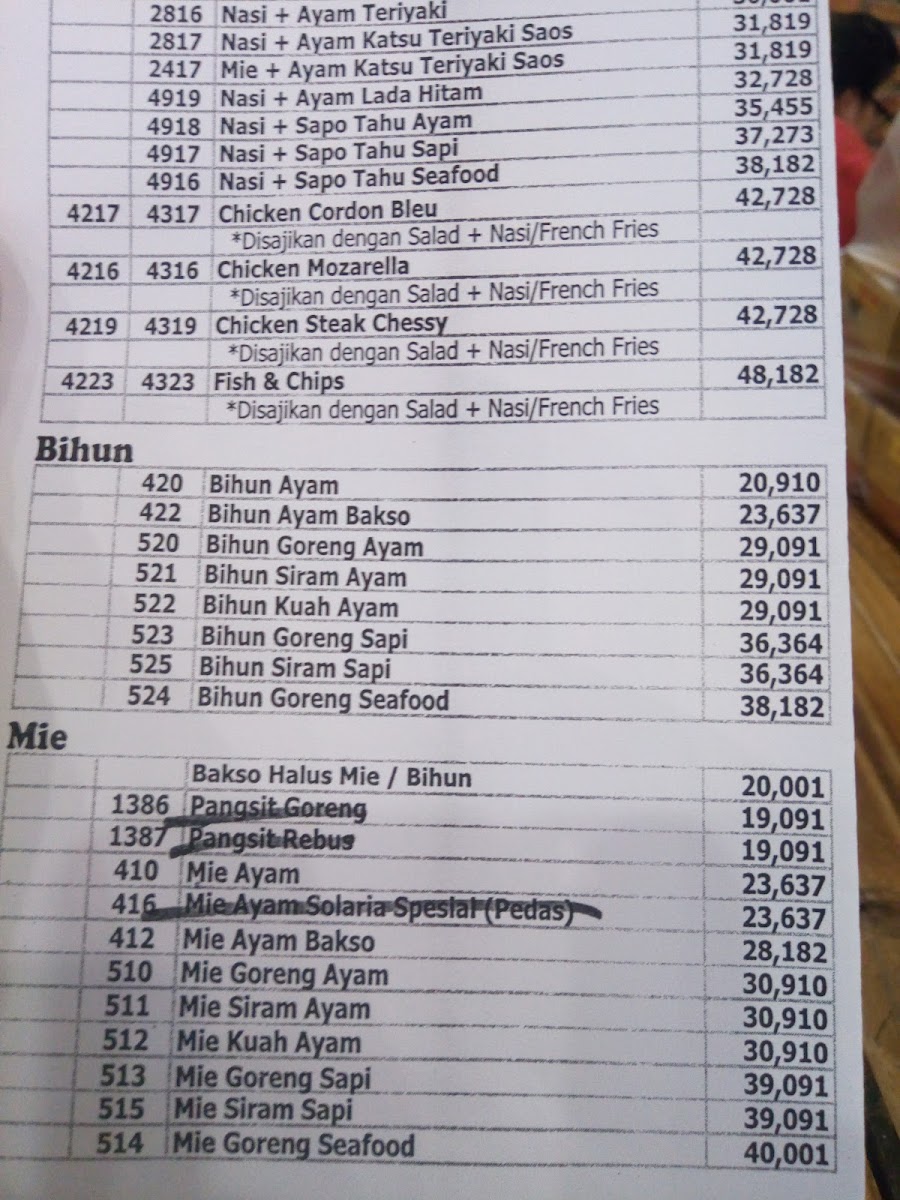 2816 Nasi + Ayam Teriyaki
2817 Nasi + Ayam Katsu Teriyaki Saos 31,819
2417 Mie + Ayam Katsu Teriyaki Saos 31,819
4919 Nasi + Ayam Lada Hitam 32,728
4918 Nasi + Sapo Tahu Ayam 35,455
4917 Nasi + Sapo Tahu Sapi 37,273
4916 Nasi + Sapo Tahu Seafood 38,182
4217 4317 Chicken Cordon Bleu 42,728
*Disajikan dengan Salad + Nasi/French Fries
4216 4316 Chicken Mozarella 42,728
*Disajikan dengan Salad + Nasi/French Fries
4219 4319 Chicken Steak Chessy 42,728
*Disajikan dengan Salad + Nasi/French Fries
4223 4323 Fish & Chips 48,182
*Disajikan dengan Salad + Nasi/French Fries
Bihun
420 Bihun Ayam 20,910
422 Bihun Ayam Bakso 23,637
520 Bihun Goreng Ayam 29,091
521 Bihun Siram Ayam 29,091
522 Bihun Kuah Ayam 29,091
523 Bihun Goreng Sapi 36,364
525 Bihun Siram Sapi 36,364
524 Bihun Goreng Seafood 38,182
Mie
Bakso Halus Mie / Bihun 20,001
1386 Pangsit Goreng 19,091
1387 Pangsit Rebus 19,091
410 Mie Ayam 23,637
416 Mie Ayam Solaria Spesial (Pedas) 23,637
412 Mie Ayam Bakso 28,182
510 Mie Goreng Ayam 30,910
511 Mie Siram Ayam 30,910
512 Mie Kuah Ayam 30,910
513 Mie Goreng Sapi 39,091
515 Mie Siram Sapi 39,091
514 Mie Goreng Seafood 40,001